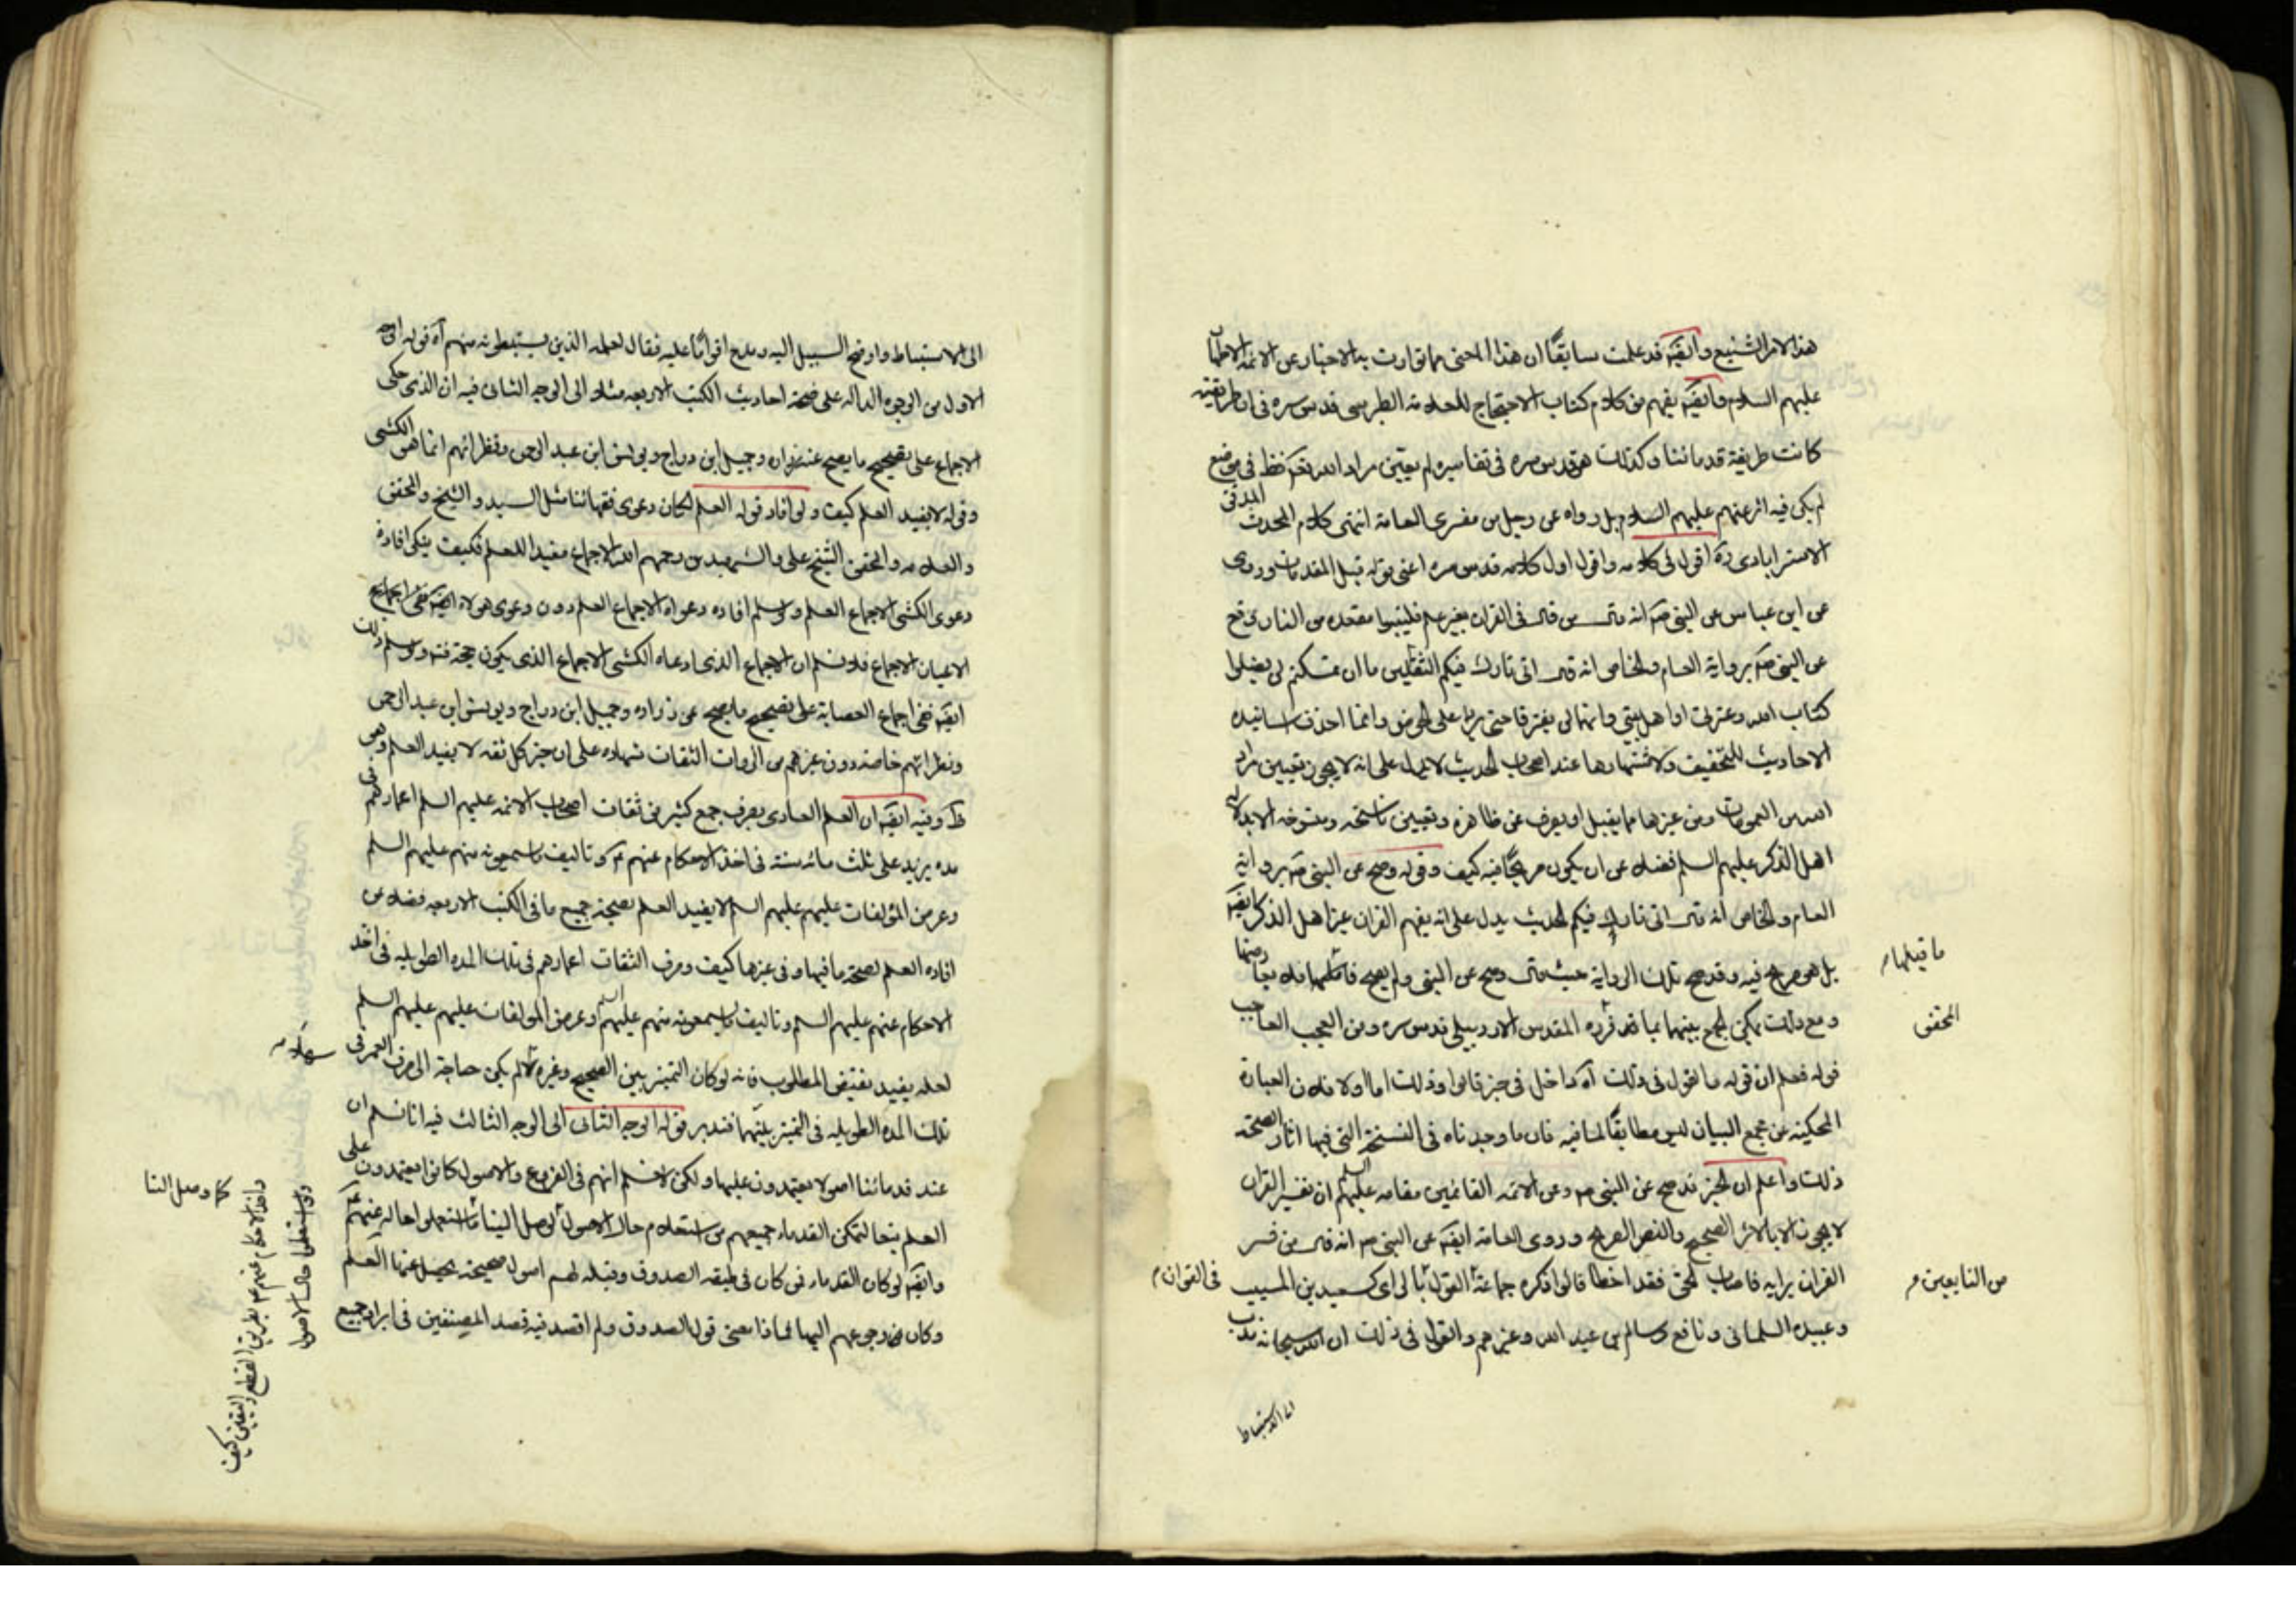 هذا الامر الشنيع وايضا قد علمت سابقا ان هذا المعنى مما تواترت به الاخبار عن الائمة الاطهار
عليهم السلام وايضا يفهم من كلام كتاب الاحتجاج للعلامة الطبرسي قدس سره في ان طريقته
كانت طريقة قدمائنا وكذلك هو قدس سره في تفاسيره لم يعين مراد الله تعالى في موضع
لم يكن فيه اثر عنهم عليهم السلام بل رواه عن رجل من مفسري العامة انتهى كلام المحدث المدقق
الاسترابادي ره اقول في كلامه واقول اول كلامه قدس سره اعني قوله قبل المقدمات وروي
عن ابن عباس عن النبي ص انه قال من قال في القران بغير علم فليتبوا مقعده من النار وصح
عن النبي ص برواية العام والخاص انه قال اني تارك فيكم الثقلين ما ان تمسكتم لن تضلوا
كتاب الله وعترتي اهل بيتي وانهما لن يفترقا حتى يردا على الحوض وانما احذف اسانيد
الاحاديث للتخفيف ولاشتهارها عند اصحاب الحديث لا يدل على انه لا يجوز تعيين مراد
الله من العمومات ومن غيرها مما يقبل ان يصرف عن ظاهره وتعيين ناسخه ومنسوخه الا بدلالة
اهل الذكر عليهم السلم فضلا عن ان يكون صريحا فيه كيف وقوله وصح عن النبي ص برواية
العام والخاص انه قال اني تارك فيكم الحديث يدل على انه يفهم القران غير اهل الذكر ايضا
بل هو صريح فيه وقد صح تلك الرواية حيث قال وصح عن النبي ولم يصح ما قبلها فلا يعارضها
ما قبلها م
ومع ذلك يمكن الجمع بينهما بما قد قرره المقدس الاردبيلي قدس سره ومن العجب العاجب
المحقق
قوله فعلم ان قوله ما نقول في ذلك آه داخل في حيز قالوا وذلك اما اولا فلان العبارة
المحكية عن مجمع البيان ليس مطابقا لما فيه فان ما وجدناه في النسخة التي فيها اثار الصحة
ذلك واعلم ان الخبر قد صح عن النبي ص وعن الائمة القائمين مقامه عليهم السلم ان تفسير القران
لا يجوز الا بالاثر الصحيح والنص الصريح وروى العامة ايضا عن النبي ص انه قال من فسر
القران برايه فاصاب الحق فقد اخطا قالوا وكره جماعة القول بالراي كسعيد بن المسيب
من التابعين م
في القوان م
وعبيدة السلماني ونافع وسالم بن عبد الله وغيرهم والقول في ذلك ان الله سبحانه ندب
الى الاستنباط
الى الاستنباط واوضح السبيل اليه ومدح اقواما عليه فقال لعلمه الذين يستنبطونه منهم آه قوله الوجه
الاول من الوجوه الدالة على صحة احاديث الكتب الاربعة مثلا الى الوجه الثاني فيه ان الذي حكى
الاجماع على تصحيح ما يصح عن زرارة وجميل ابن دراج ويونس ابن عبد الرحمن ونظرائهم انما هو الكشي
وقوله لا يفيد العلم كيف ولو افاد قوله العلم لكان دعوى فقهائنا مثل السيد والشيخ والمحقق
والعلامة والمحقق الشيخ علي والشهيدين رحمهم الله الاجماع مفيدا للعلم فكيف ينكر افادة
دعوى الكشي الاجماع العلم ولو سلم افادة دعواه الاجماع العلم دون دعوى هؤلاء
الاعيان الاجماع فلا نسلم ان الاجماع الذي ادعاه الكشي الاجماع الذي يكون حجة فيه ولو سلم ذلك
ايضا ففي اجماع العصابة على تصحيح ما يصح عن زرارة وجميل ابن دراج ويونس ابن عبد الرحمن
ونظرائهم خاصة دون غيرهم من الروات الثقات شهادة على ان خبر كل ثقة لا يفيد العلم وهو
ظ وفيه ايضا ان العلم العادي بصرف جمع كثير من ثقات اصحاب الائمة عليهم السلم اعمارهم في
مدة يزيد على ثلث مائة سنة في اخذ الاحكام عنهم ع وتاليف ما يسمعونه منهم عليهم السلم
وعرض المؤلفات عليهم عليهم السلم لا يفيد العلم بصحة جميع ما في الكتب الاربعة فضلا عن
افادة العلم بصحة ما فيها وفي غيرها كيف وصرف الثقات اعمارهم في تلك المدة الطويلة في اخذ
الاحكام عنهم عليهم السلم وتاليف ما يسمعونه منهم عليهم السلم وعرض المؤلفات عليهم عليهم السلم
لعله يفيد نقيض المطلوب فانه لو كان التميز بين الصحيح وغيره سهلا لم يكن حاجة الى صرف العمر في
سهلا م
تلك المدة الطويلة في التميز بينهما فتدبر قوله الوجه الثاني الى الوجه الثالث فيه انا نسلم ان
عند قدمائنا اصولا يعتمدون عليها ولكن لا نسلم انهم في الفروع والاصول كانوا يعتمدون على
العلم بتعا لتمكن القدماء جميعهم من استعلام حال الاصول لوصل الينا ما استعملوا حاله عنهم ع
كما وصل النا
وايضا لو كان القدماء فمن كان في طبقة الصدوق وقبله لهم اصول صحيحة يحصل عنها العلم
وكان من رجوعهم اليها فماذا معنى قول الصدوق ولم اقصد فيه قصد المصنفين في ايراد جميع
واخذ الاحكام عنهم ع بطريق القطع واليقين كيف
ولو استعلموا حال الاصول